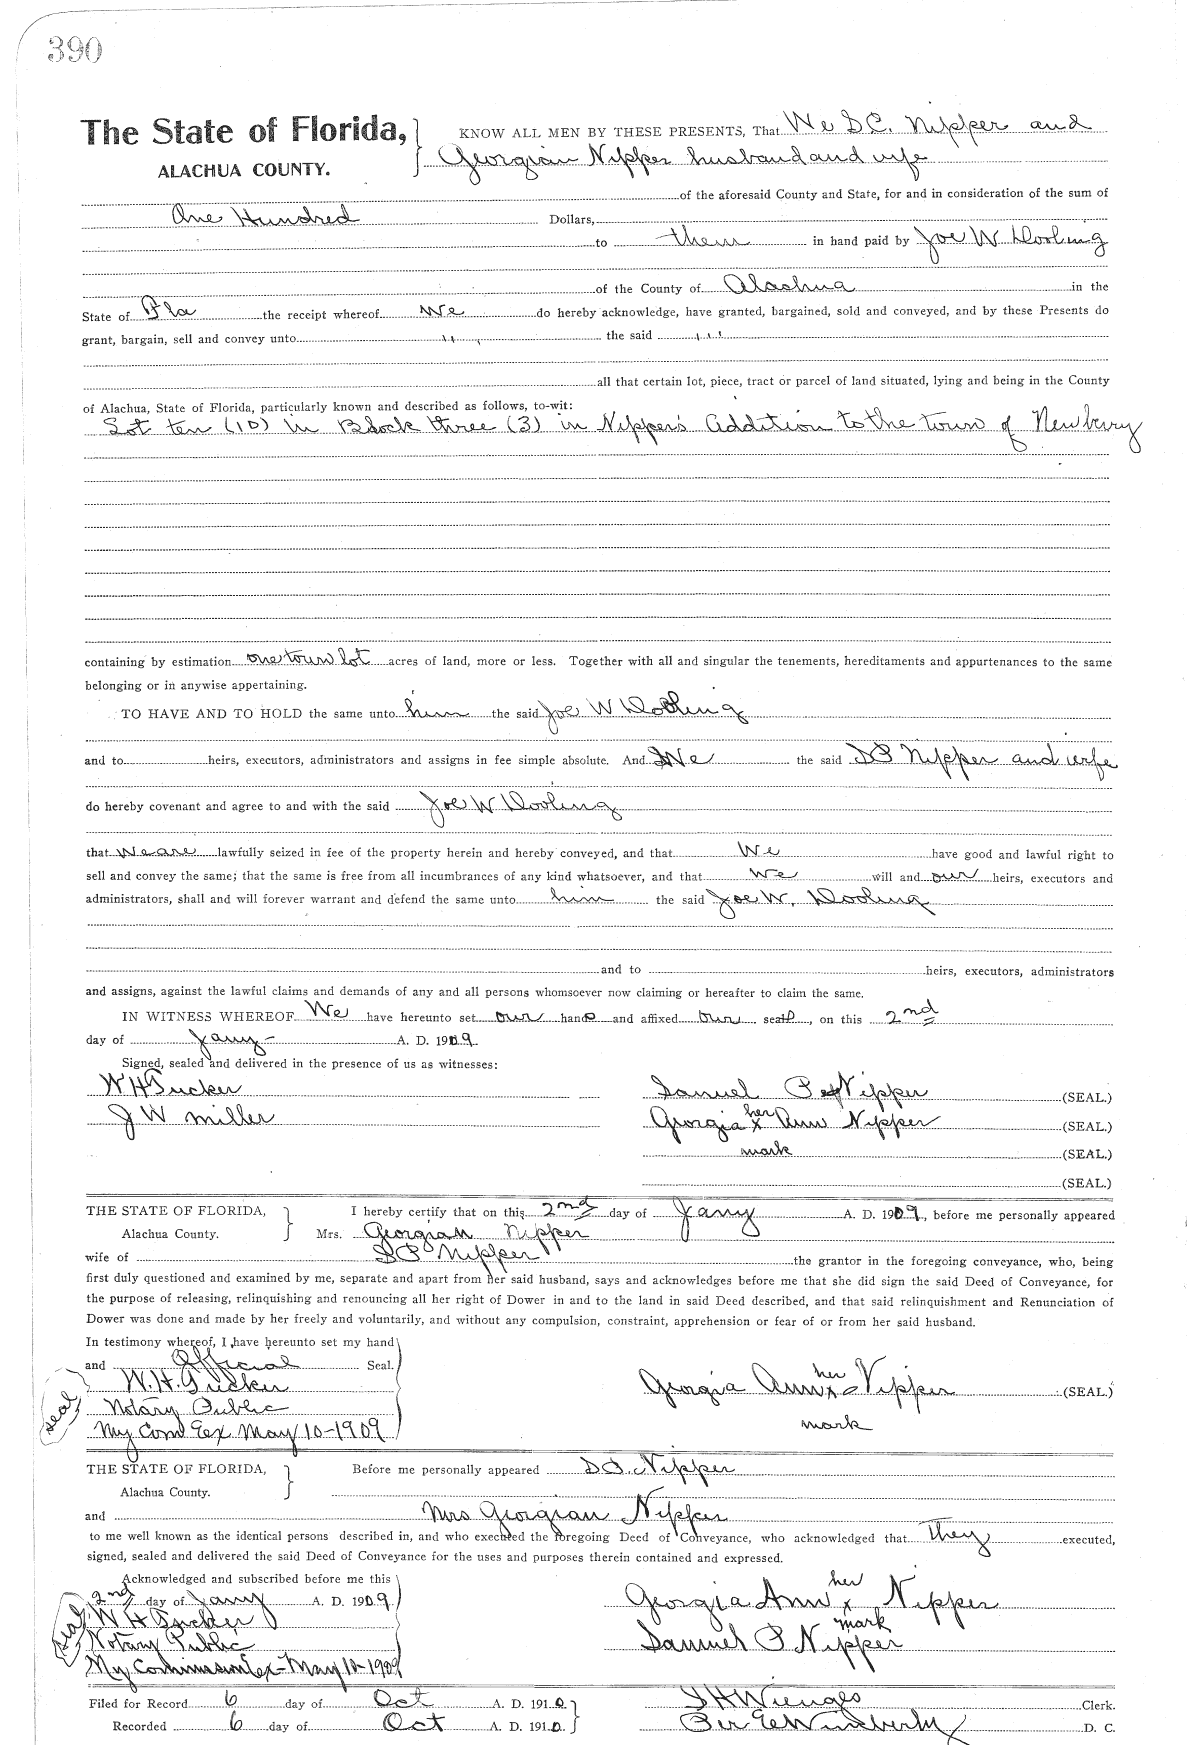 390
The State of Florida, KNOW ALL MEN BY THESE PRESENTS, That We D C. Nipper and
ALACHUA COUNTY. Georgian Nipper husband and wife
of the aforesaid County and State, for and in consideration of the sum of
One Hundred Dollars,
to them in hand paid by Joe W Dooling
of the County of Alachua in the
State of Fla the receipt whereof we do hereby acknowledge, have granted, bargained, sold and conveyed, and by these Presents do
grant, bargain, sell and convey unto " the said "
all that certain lot, piece, tract or parcel of land situated, lying and being in the County
of Alachua, State of Florida, particularly known and described as follows, to-wit:
Lot ten (10) in Block three (3) in Nipper's Addition to the town of Newberry
containing by estimation one town lot acres of land, more or less. Together with all and singular the tenements, hereditaments and appurtenances to the same
belonging or in anywise appertaining.
TO HAVE AND TO HOLD the same unto him the said Joe W Dooling
and to heirs, executors, administrators and assigns in fee simple absolute. And We the said S P Nipper and wife
do hereby covenant and agree to and with the said Joe W Dooling
that we are lawfully seized in fee of the property herein and hereby conveyed, and that We have good and lawful right to
sell and convey the same; that the same is free from all incumbrances of any kind whatsoever, and that We will and our heirs, executors and
administrators, shall and will forever warrant and defend the same unto him the said Joe W. Dooling
and to heirs, executors, administrators
and assigns, against the lawful claims and demands of any and all persons whomsoever now claiming or hereafter to claim the same.
IN WITNESS WHEREOF We have hereunto set our hands and affixed our seals, on this 2nd
day of Jany A. D. 1909.
Signed, sealed and delivered in the presence of us as witnesses:
W H Tucker Samuel P Nipper (SEAL.)
J W Miller Georgia her x Ann Nipper (SEAL.)
mark (SEAL.)
(SEAL.)
THE STATE OF FLORIDA, I hereby certify that on this 2nd day of Jany A. D. 1909, before me personally appeared
Alachua County. Mrs. Georgian Nipper
wife of S P Nipper the grantor in the foregoing conveyance, who, being
first duly questioned and examined by me, separate and apart from her said husband, says and acknowledges before me that she did sign the said Deed of Conveyance, for
the purpose of releasing, relinquishing and renouncing all her right of Dower in and to the land in said Deed described, and that said relinquishment and Renunciation of
Dower was done and made by her freely and voluntarily, and without any compulsion, constraint, apprehension or fear of or from her said husband.
In testimony whereof, I have hereunto set my hand
and Official Seal.
seal W. H. Tucker Georgia Ann her x Nipper (SEAL)
Notary Public mark
My Com Ex May 10-1909
THE STATE OF FLORIDA, Before me personally appeared S P. Nipper
Alachua County.
and Mrs Georgian Nipper
to me well known as the identical persons described in, and who executed the foregoing Deed of Conveyance, who acknowledged that They executed,
signed, sealed and delivered the said Deed of Conveyance for the uses and purposes therein contained and expressed.
Acknowledged and subscribed before me this
2nd day of Jany A. D. 1909 Georgia Ann her x Nipper
seal W H Tucker mark
Notary Public Samuel P Nipper
My Commission Ex-May 10-1909
Filed for Record 6 day of Oct A. D. 1910 S H Wienges Clerk.
Recorded 6 day of Oct A. D. 1910 Per E E Wimberly D. C.